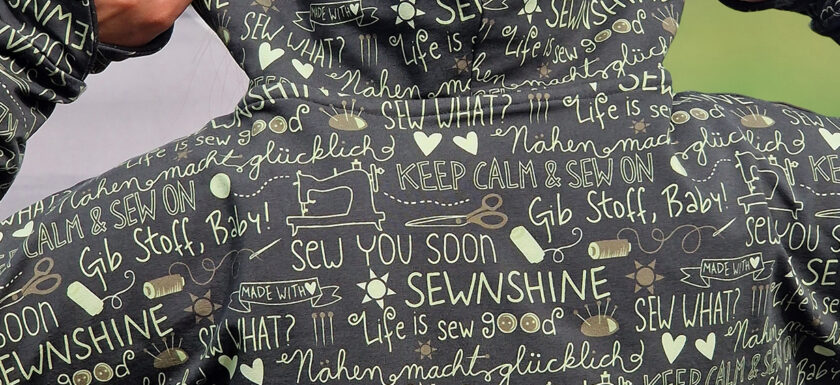 MADE WITH
SEWNSHINE
SEW WHAT?
Life is sew good
Nähen macht glücklich
SEWNSHINE
SEW WHAT?
Life is sew
Life is sew good
Nähen
Nähen macht glücklich
KEEP CALM & SEW ON
KEEP CALM & SEW ON
Gib Stoff, Baby!
Gib Stoff, Baby!
SEW YOU SOON
SEW YOU SOON
MADE WITH
MADE WITH
SEWNSHINE
SEW WHAT?
SEW WHAT?
SOON
SEWNSHINE
Life is sew good
Life is sew
Nähen macht glücklich
Nähen
KEEP CALM &
SEW ON
Gib Stoff